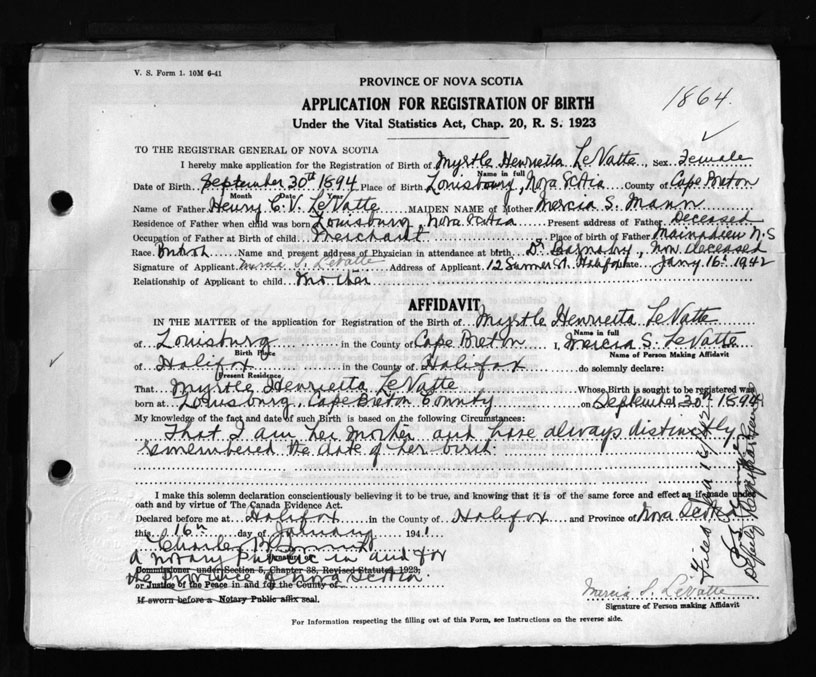 V. S. Form 1. 10M 6-41
PROVINCE OF NOVA SCOTIA
1864.
APPLICATION FOR REGISTRATION OF BIRTH
Under the Vital Statistics Act, Chap. 20, R. S. 1923
TO THE REGISTRAR GENERAL OF NOVA SCOTIA
I hereby make application for the Registration of Birth of Myrtle Henrietta LeVatte, Sex Female
Name in full
Date of Birth September 30th 1894 Place of Birth Louisburg, Nova Scotia County of Cape Breton
Month Date Year
Name of Father Henry C. V. LeVatte MAIDEN NAME of Mother Mercia S. Mann
Residence of Father when child was born Louisburg Nova Scotia Present address of Father Deceased
Occupation of Father at Birth of child Merchant Place of birth of Father Mainadieu N.S
Race Name and present address of Physician in attendance at birth Dr Now Deceased
Signature of Applicant Mercia S. LeVatte Address of Applicant 12 St. Halifax Date Jany 16th 1942
Relationship of Applicant to child Mother
AFFIDAVIT
IN THE MATTER of the application for Registration of the Birth of Myrtle Henrietta LeVatte
Name in full
of Louisburg in the County of Cape Breton I, Mercia S. LeVatte
Birth Place Name of Person Making Affidavit
of Halifax in the County of Halifax do solemnly declare:
Present Residence
That Myrtle Henrietta LeVatte Whose Birth is sought to be registered was
born at Louisburg, Cape Breton County on September 30th 1894
My knowledge of the fact and date of such Birth is based on the following Circumstances:
That I am her Mother and have always distinctly
remembered the date of her birth.
I make this solemn declaration conscientiously believing it to be true, and knowing that it is of the same force and effect as if made under
oath and by virtue of The Canada Evidence Act.
Declared before me at Halifax in the County of Halifax and Province of Nova Scotia
this 16th day of January 1941
Charles
a Notary Public in and for
Commissioner under Section 5, Chapter 38, Revised Statutes 1923,
the Province of Nova Scotia.
or Justice of the Peace in and for the County of
If sworn before a Notary Public affix seal.
Mercia S. LeVatte
Signature of Person making Affidavit
For Information respecting the filling out of this Form, see Instructions on the reverse side.
Deputy Registrar General